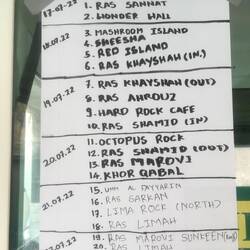 17.07.22
1. RAS SANNAT
2. WONDER WALL
18.07.22
3. MASHROOM ISLAND
4. SHEESHA
5. RED ISLAND
6. RAS KHAYSHAH (IN.)
19.07.22
7. RAS KHAYSHAH (OUT)
8. RAS AHROUZ
9. HARD ROCK CAFE
10. RAS SHAMID (IN)
20.07.22
11. OCTOPUS ROCK
12. RAS SHAMID (OUT)
13. RAS MAROVI
14. KHOR QABAL
21.07.22
15. UMM AL FAYYARIN
16. RAS SARKAN
17. LIMA ROCK (NORTH)
18. RAS LIMAH
22.07.22
19. RAS MAROVI SUNKEEN
20. RAS LIMAH